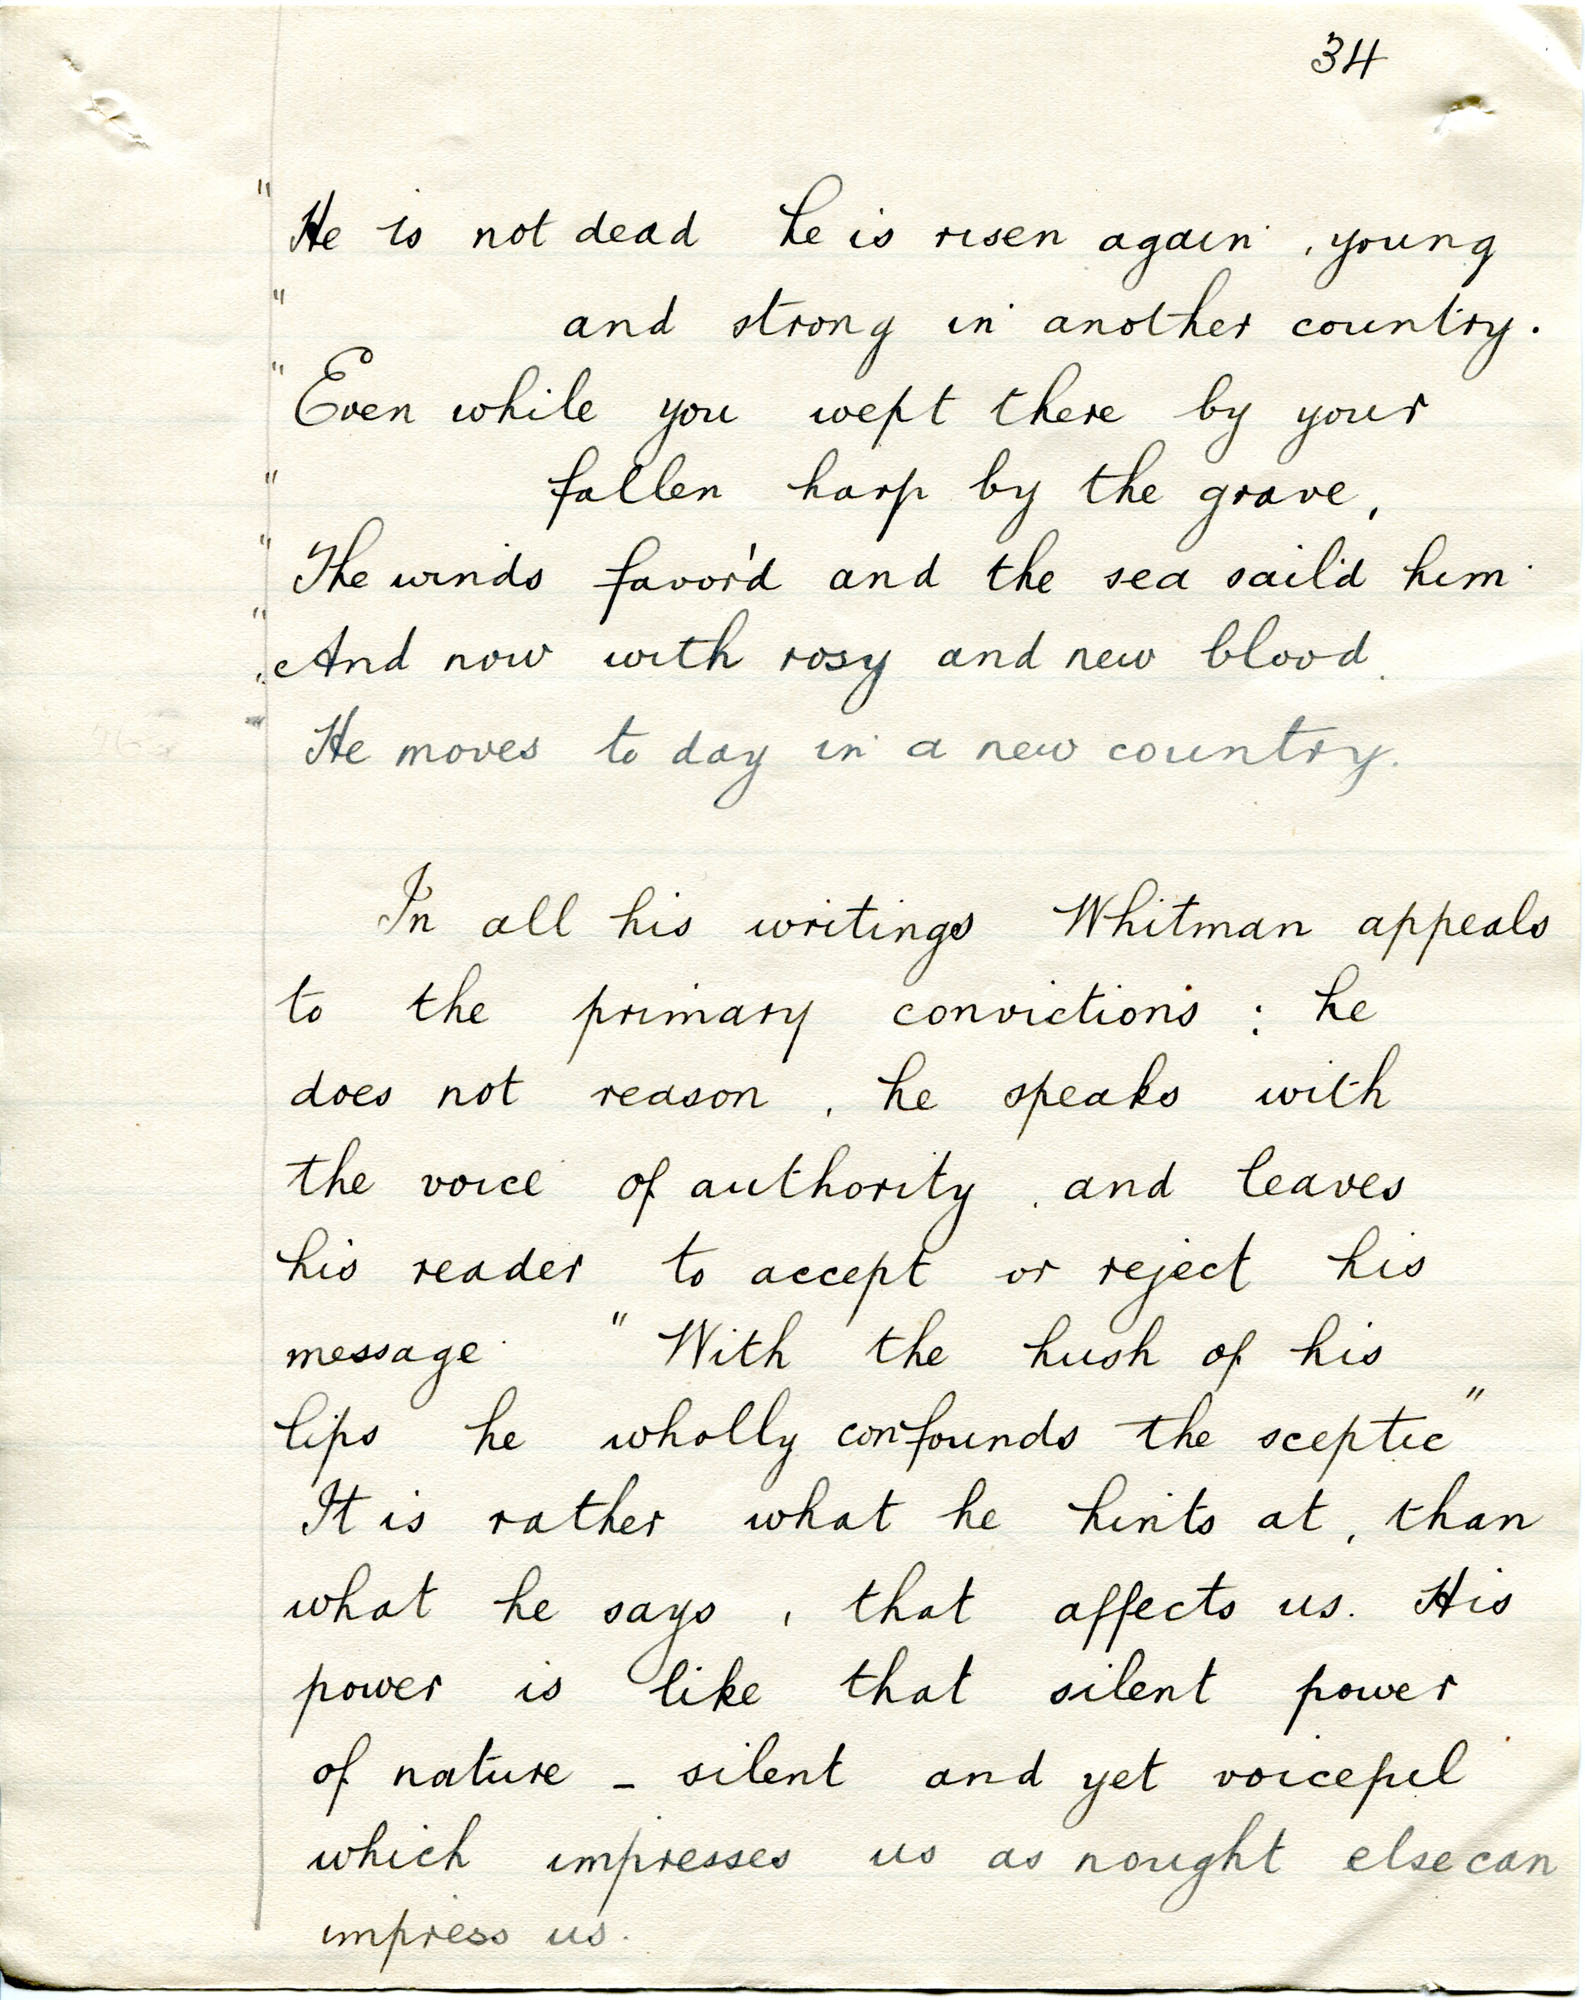 34
" He is not dead he is risen again, young
" and strong in another country.
" Even while you wept there by your
" fallen harp by the grave,
" The winds favor'd and the sea sail'd him
" And now with rosy and new blood.
" He moves to day in a new country.
In all his writings Whitman appeals
to the primary convictions : he
does not reason, he speaks with
the voice of authority, and leaves
his reader to accept or reject his
message. " With the hush of his
lips he wholly confounds the sceptic "
It is rather what he hints at, than
what he says, that affects us. His
power is like that silent power
of nature - silent and yet voiceful
which impresses us as nought else can
impress us.